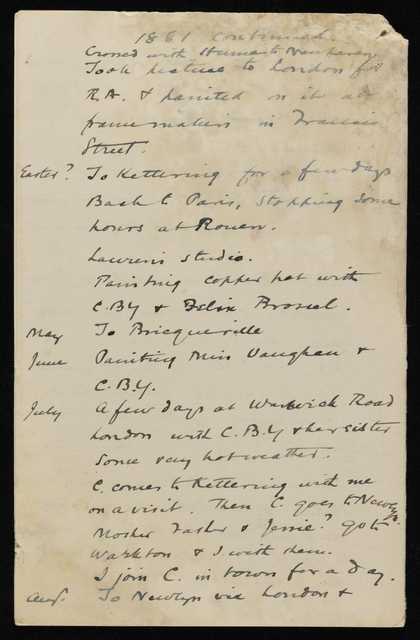 1881 continued.
Crossed with Human to Newhaven
Took picture to London for
R.A. & painted on it at
frame makers in Francis
Street.
Easter? To Kettering for a few days
Back to Paris, stopping some
hours at Rouen.
Laurens studio.
Painting copper pot with
C.B.Y & Felix
May To Bricqueville
June Painting Miss Vaughan &
C.B.Y.
July A few days at Warwick Road
London with C.B.Y & her sister
Some very hot weather.
C. comes to Kettering with me
on a visit. Then C. goes to Newlyn.
Mother Father & Jessie? go to
Warkton & I with them.
I join C. in town for a day.
Aug. To Newlyn via London &